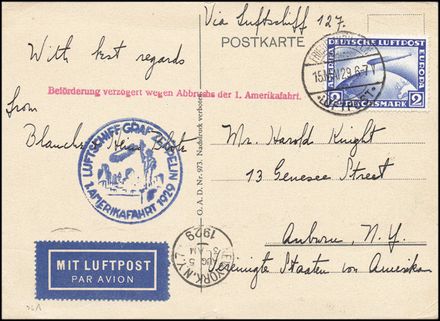 Via Luftschiff 127.
POSTKARTE
DEUTSCHE LUFTPOST
EUROPA
AMERIKA
2 REICHSMARK 2
15.MAI.29.6-7
LUFTPOST
With best regards
Beförderung verzögert wegen Abbruchs der 1. Amerikafahrt.
from
Blanche
LUFTSCHIFF GRAF ZEPPELIN
1. AMERIKAFAHRT 1929
G. A. D. Nr. 973 Nachdruck verboten
Mr. Harold Knight
13 Genesee Street
Auburn, N. Y.
Vereinigte Staaten von Amerika
NEW YORK, N.Y.
AUG 5
AM
1929
MIT LUFTPOST
PAR AVION